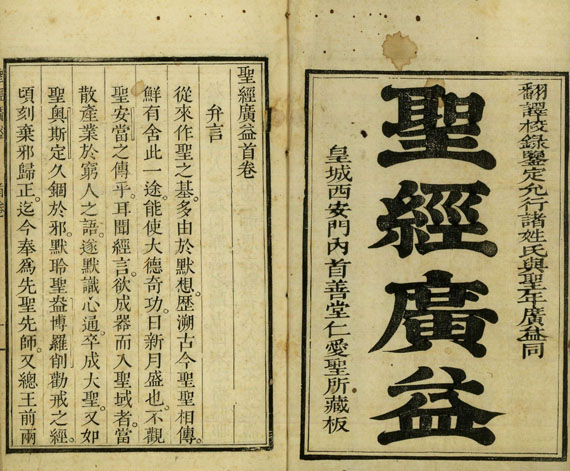 翻譯校錄鑒定允行諸姓氏與聖年廣益同
聖經廣益
皇城西安門內首善堂仁愛聖所藏板
聖經廣益首卷
弁言
從來作聖之基。多由於默想。歷溯古今聖聖相傳。
鮮有舍此一途。能使大德奇功。日新月盛也。不觀
聖安當之傳乎。耳聞經言。欲成器而入聖域者。當
散產業於窮人之語。遂默識心通。卒成大聖。又如
聖奧斯定久錮於邪。默聆聖盎博羅削勸戒之經。
頃刻棄邪歸正。迄今奉為先聖先師。又總王前兩
聖經廣益
首卷
一